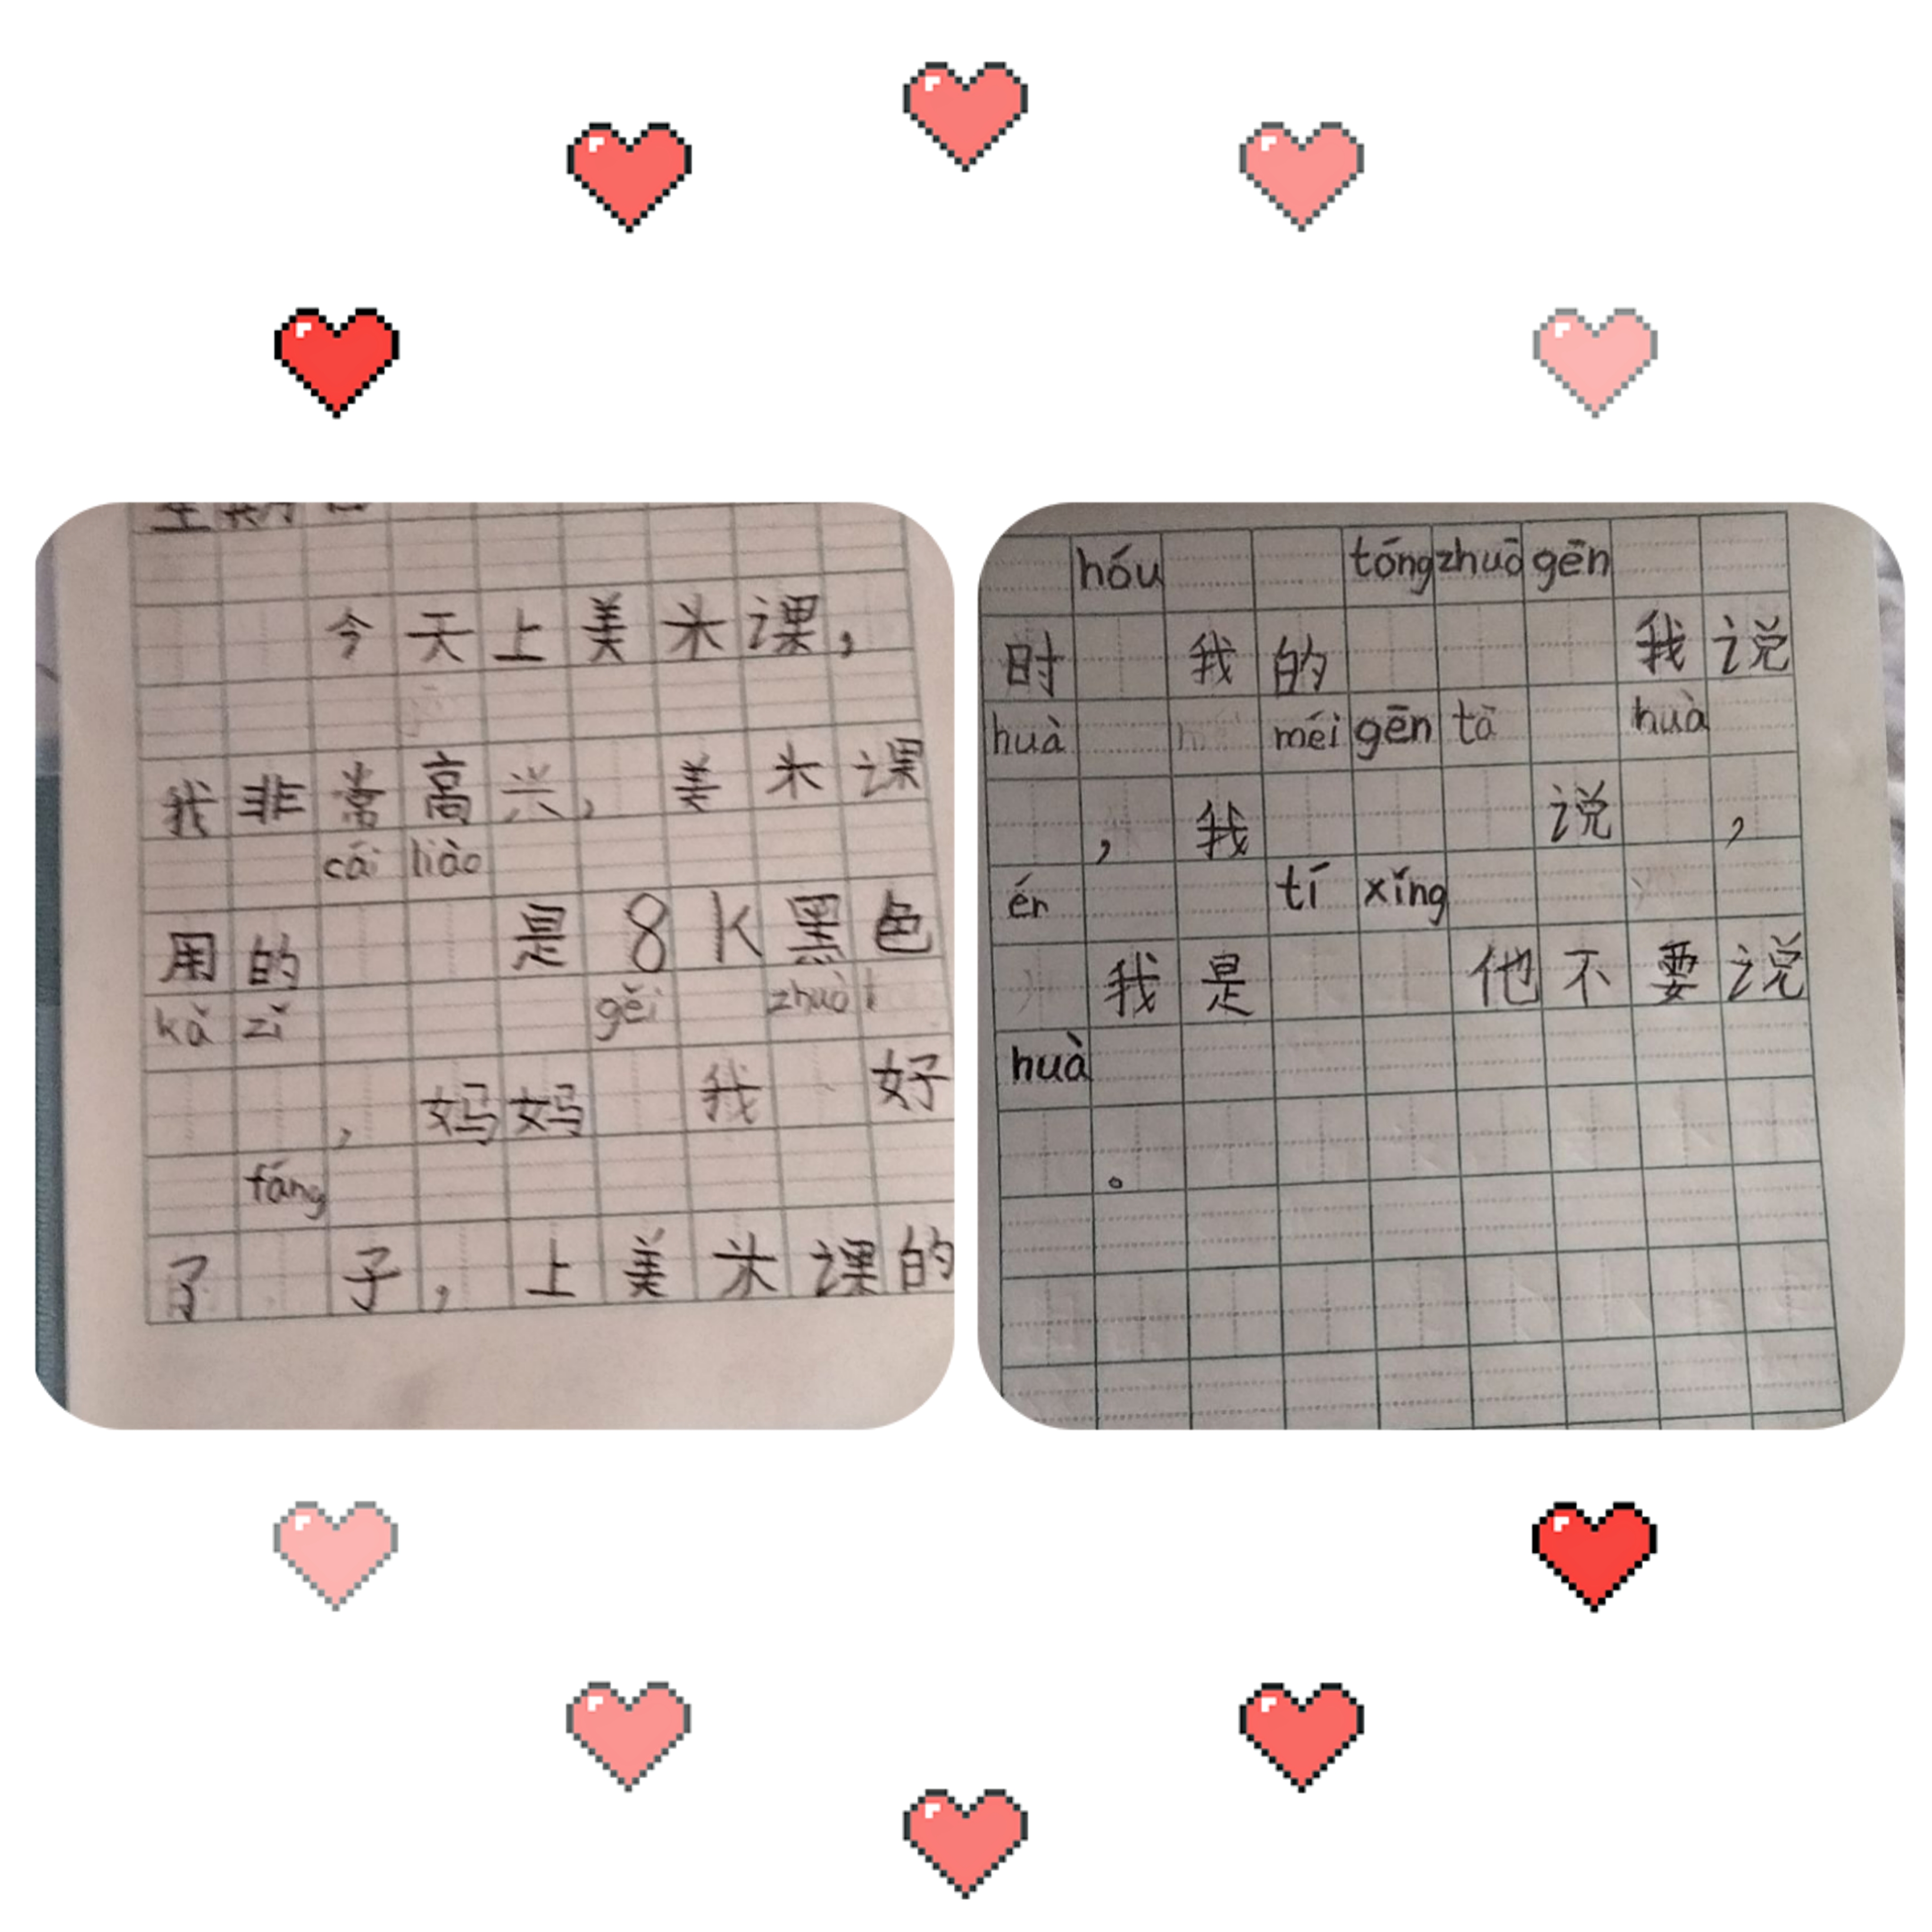 星期
今天上美术课，
我非常高兴，美术课
cái liào
用的 是8K黑色
kǎ zǐ gěi zhuō
，妈妈 我 好
fáng
了 子，上美术课的
hóu tóng zhuō gēn
时 我的 我说
huà méi gēn tā huà
，我 说 ，
ér tí xǐng
我是 他不要说
huà
。